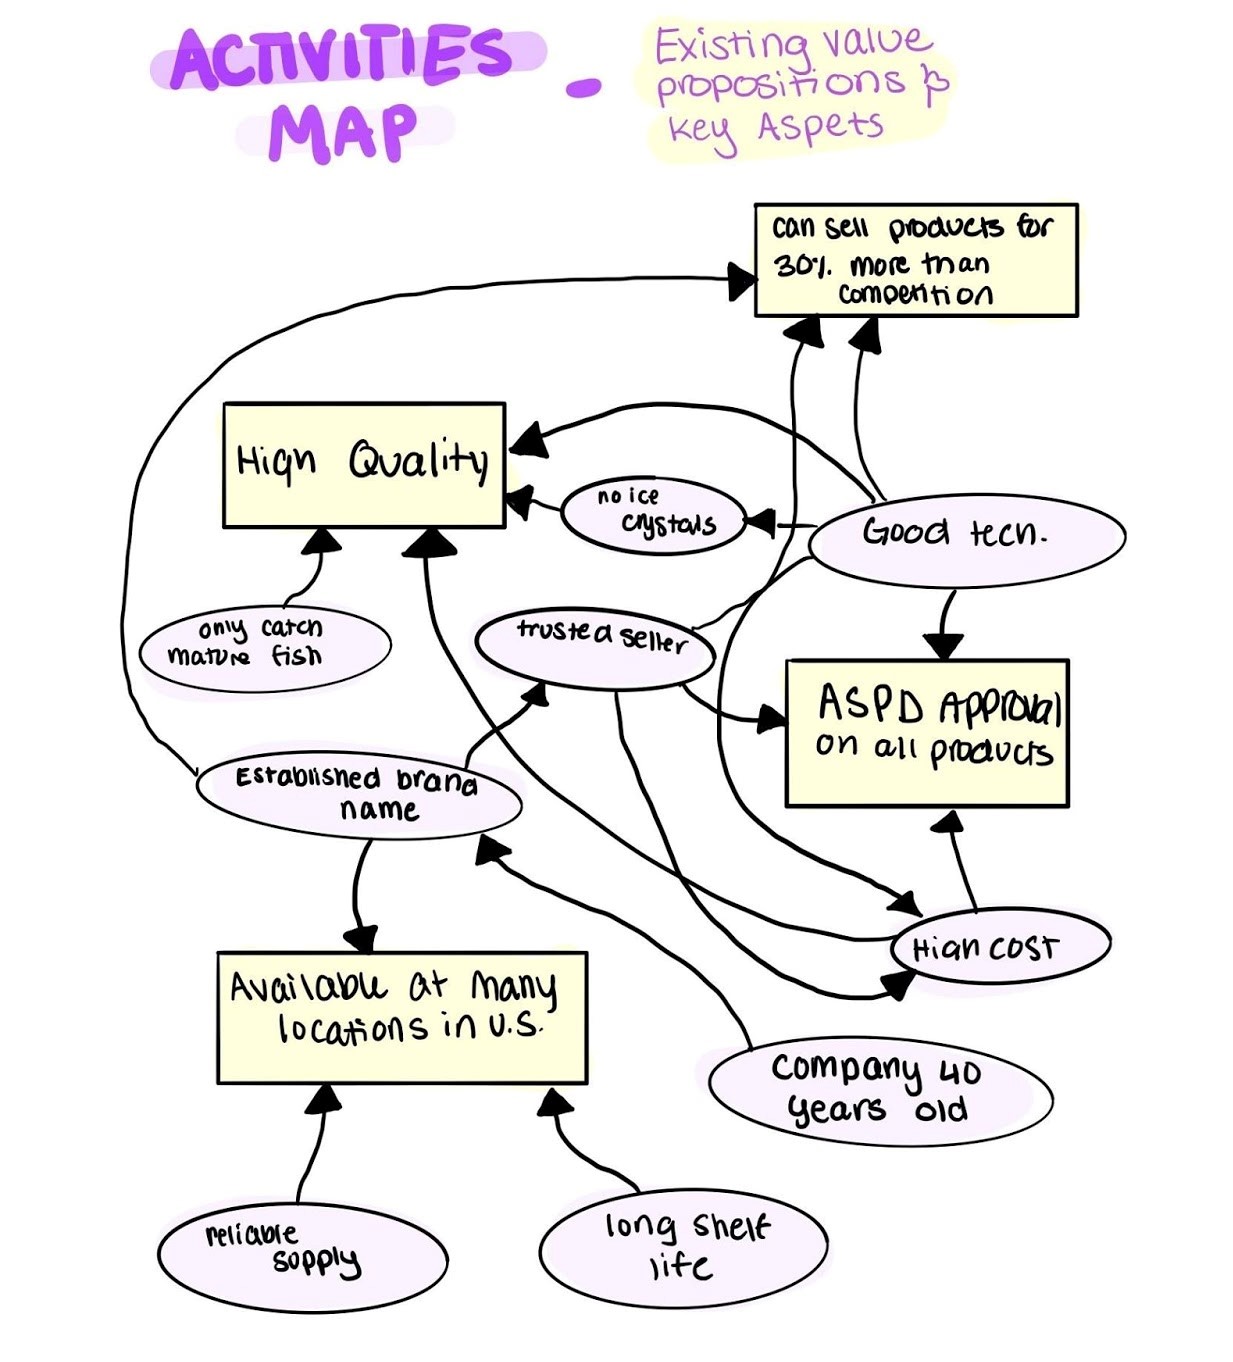 ACTIVITIES
MAP
-
Existing value
propositions &
key Aspets
can sell products for
30% more than
competition
High Quality
no ice
crystals
Good tech.
only catch
mature fish
trusted seller
ASPD Approval
on all products
Established brand
name
High cost
Available at many
locations in U.S.
Company 40
years old
reliable
supply
long shelf
life